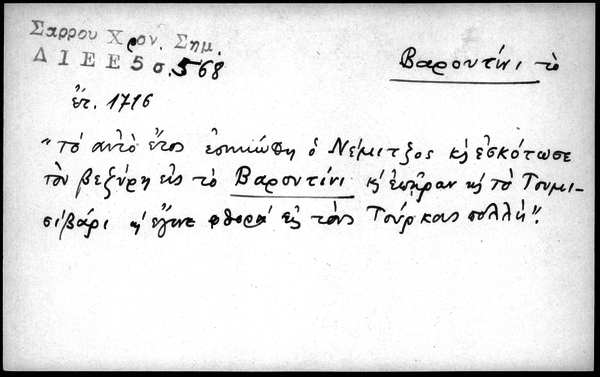 Σαρρου Χρον. Σημ.
Δ Ι Ε Ε 5 σ. 568
Βαροντίνι τὸ
ἔτ. 1716
"τὸ αὐτὸ ἔτος ἐσηκώθη ὁ Νέμιτζος κ̓ ἐσκότωσε
τὸν βεζύρη εἰς τὸ Βαροντίνι κ̓ ἐπῆραν κ̓ τὸ Τουμι-
σιβάρι κ̓ ἔγινε φθορὰ εἰς τοὺς Τούρκους πολλή".